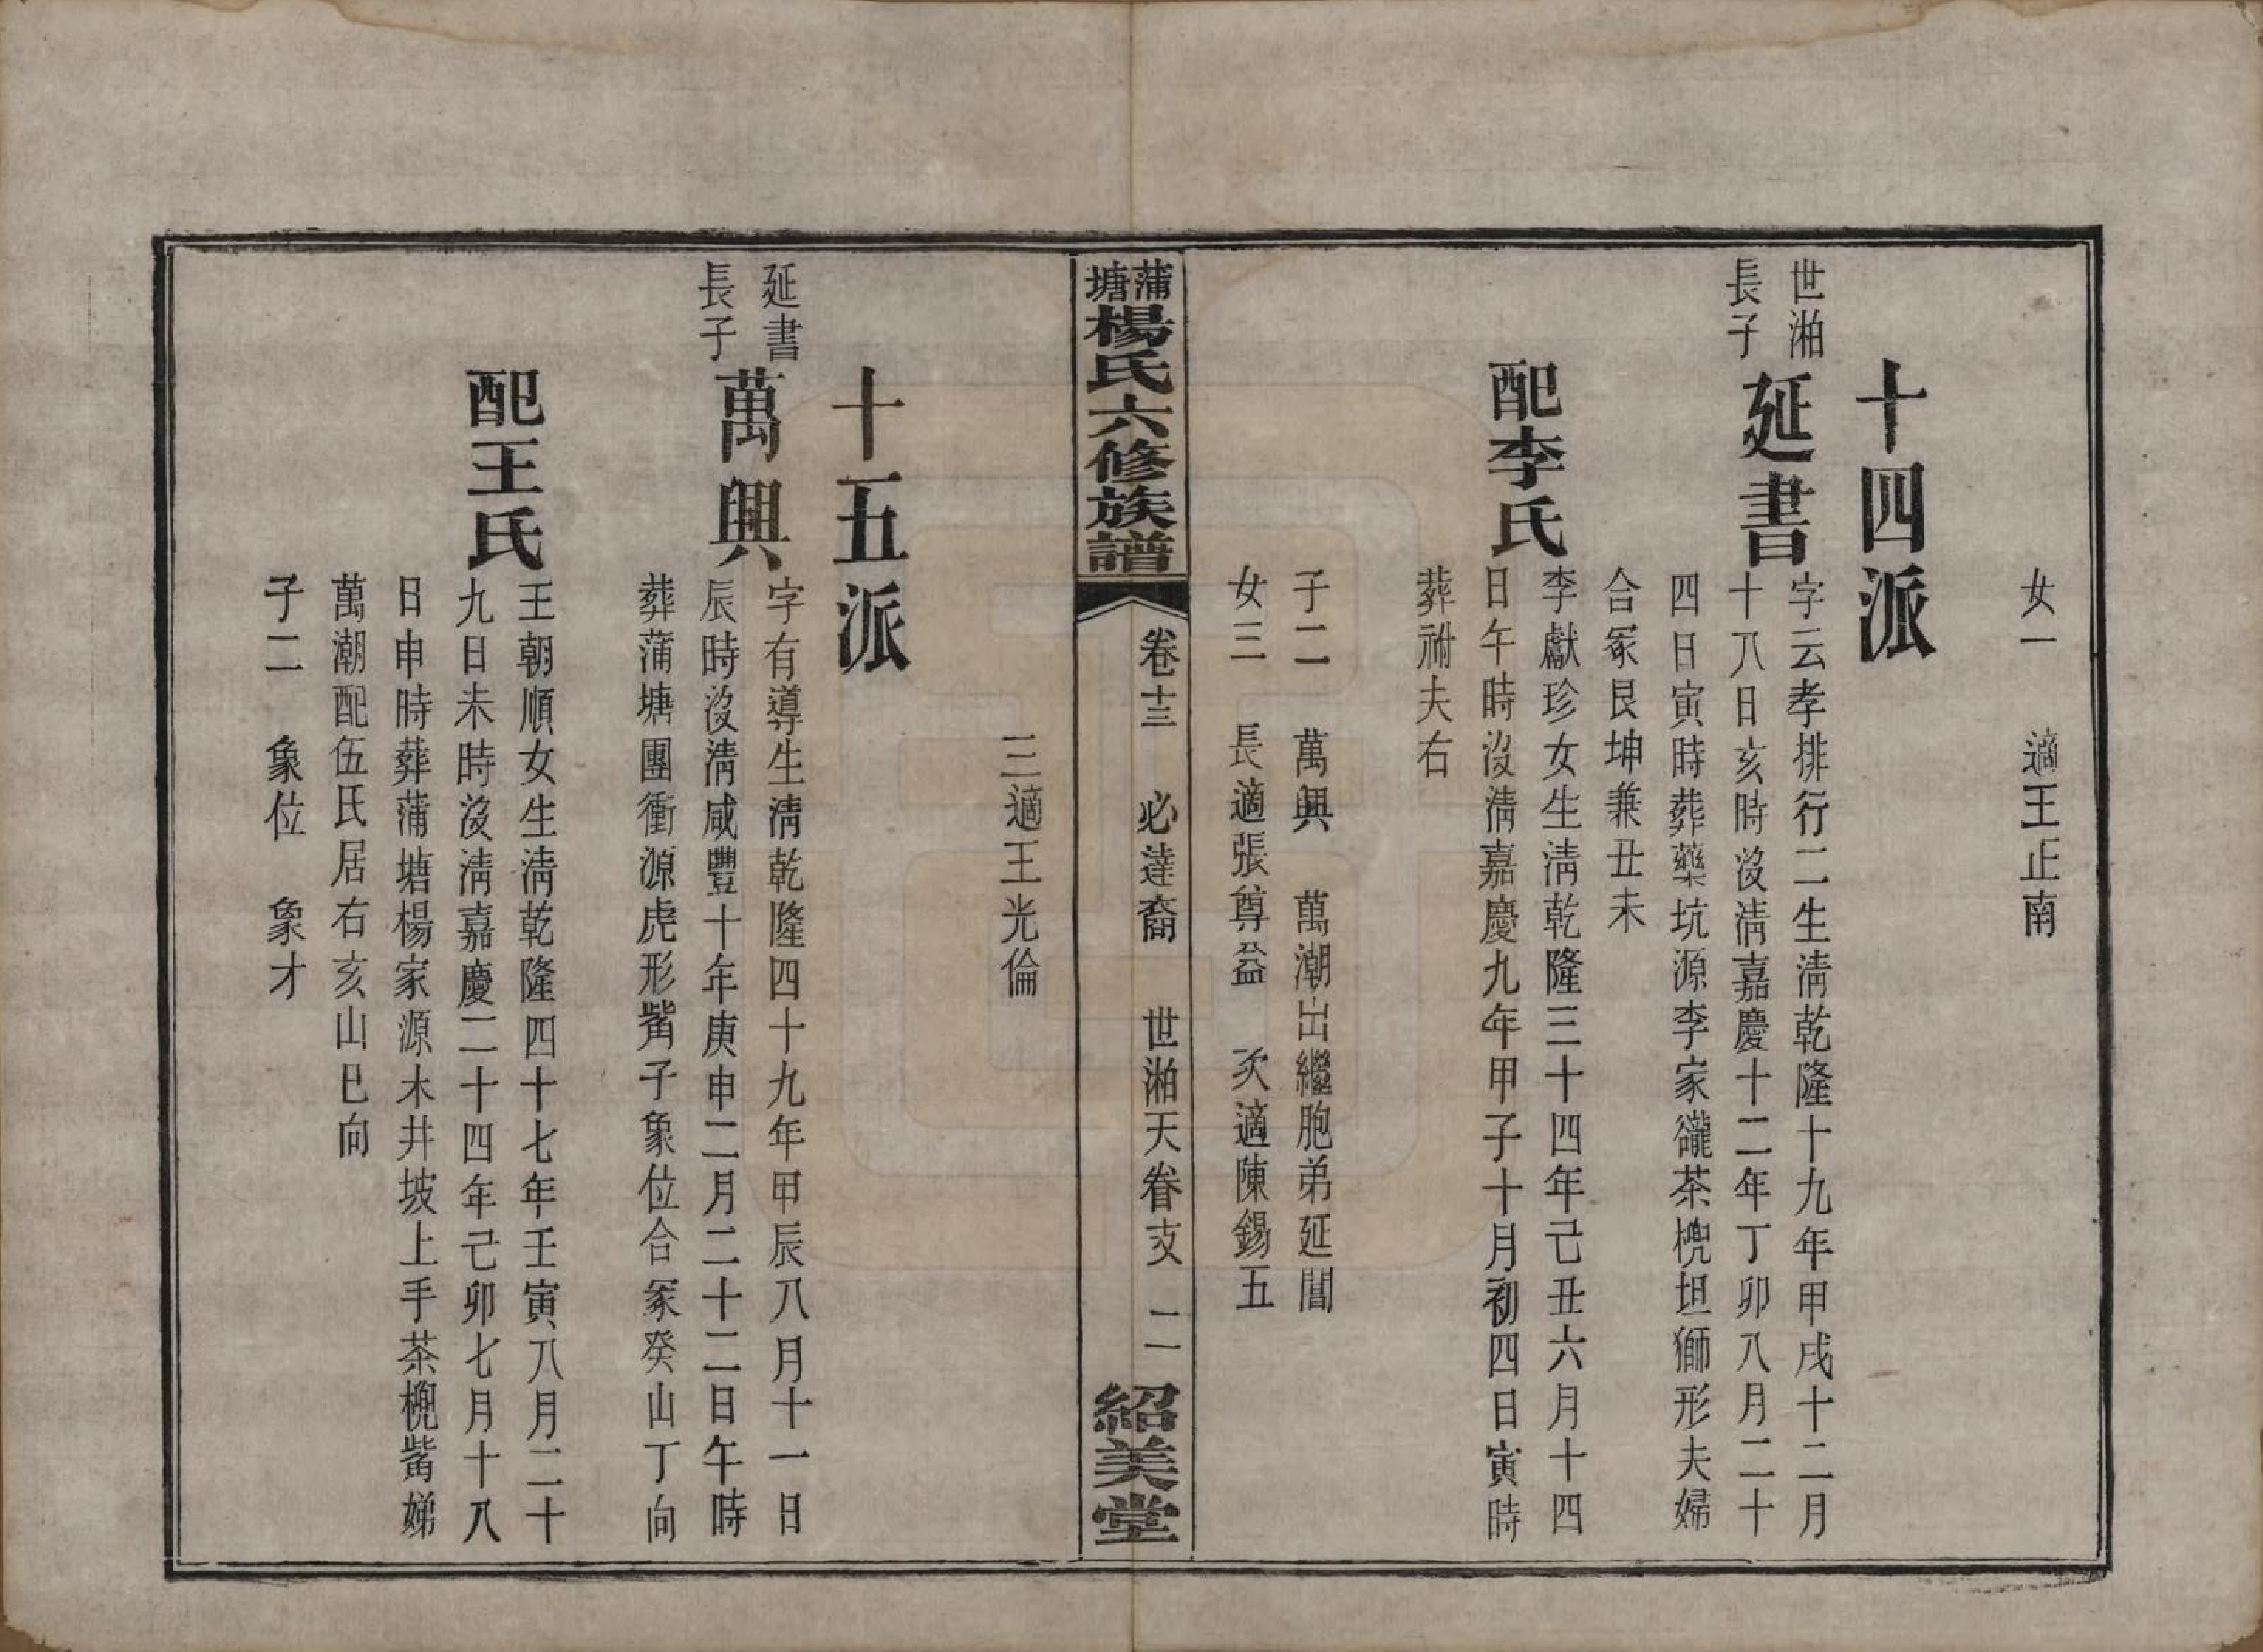 女一　適王正南
十四派
世湘
長子
延書
字云孝排行二生淸乾隆十九年甲戌十二月
十八日亥時沒淸嘉慶十二年丁卯八月二十
四日寅時葬藥坑源李家䆲茶櫆坦獅形夫婦
合冢艮坤兼丑未
配李氏
李獻珍女生淸乾隆三十四年己丑六月十四
日午時沒淸嘉慶九年甲子十月初四日寅時
葬祔夫右
子二　萬興　萬潮出繼胞弟延閶
女三　長適張尊益　次適陳錫五
蒲塘楊氏六修族譜　卷十三　必達裔　世湘天眷支　二　紹美堂
三適王光倫
十五派
延書
長子
萬興
字有導生淸乾隆四十九年甲辰八月十一日
辰時沒淸咸豐十年庚申二月二十二日午時
葬蒲塘團衝源虎形觜子象位合冢癸山丁向
配王氏
王朝順女生淸乾隆四十七年壬寅八月二十
九日未時沒淸嘉慶二十四年己卯七月十八
日申時葬蒲塘楊家源木井坡上手茶櫆觜娣
萬潮配伍氏居右亥山巳向
子二　象位　象才